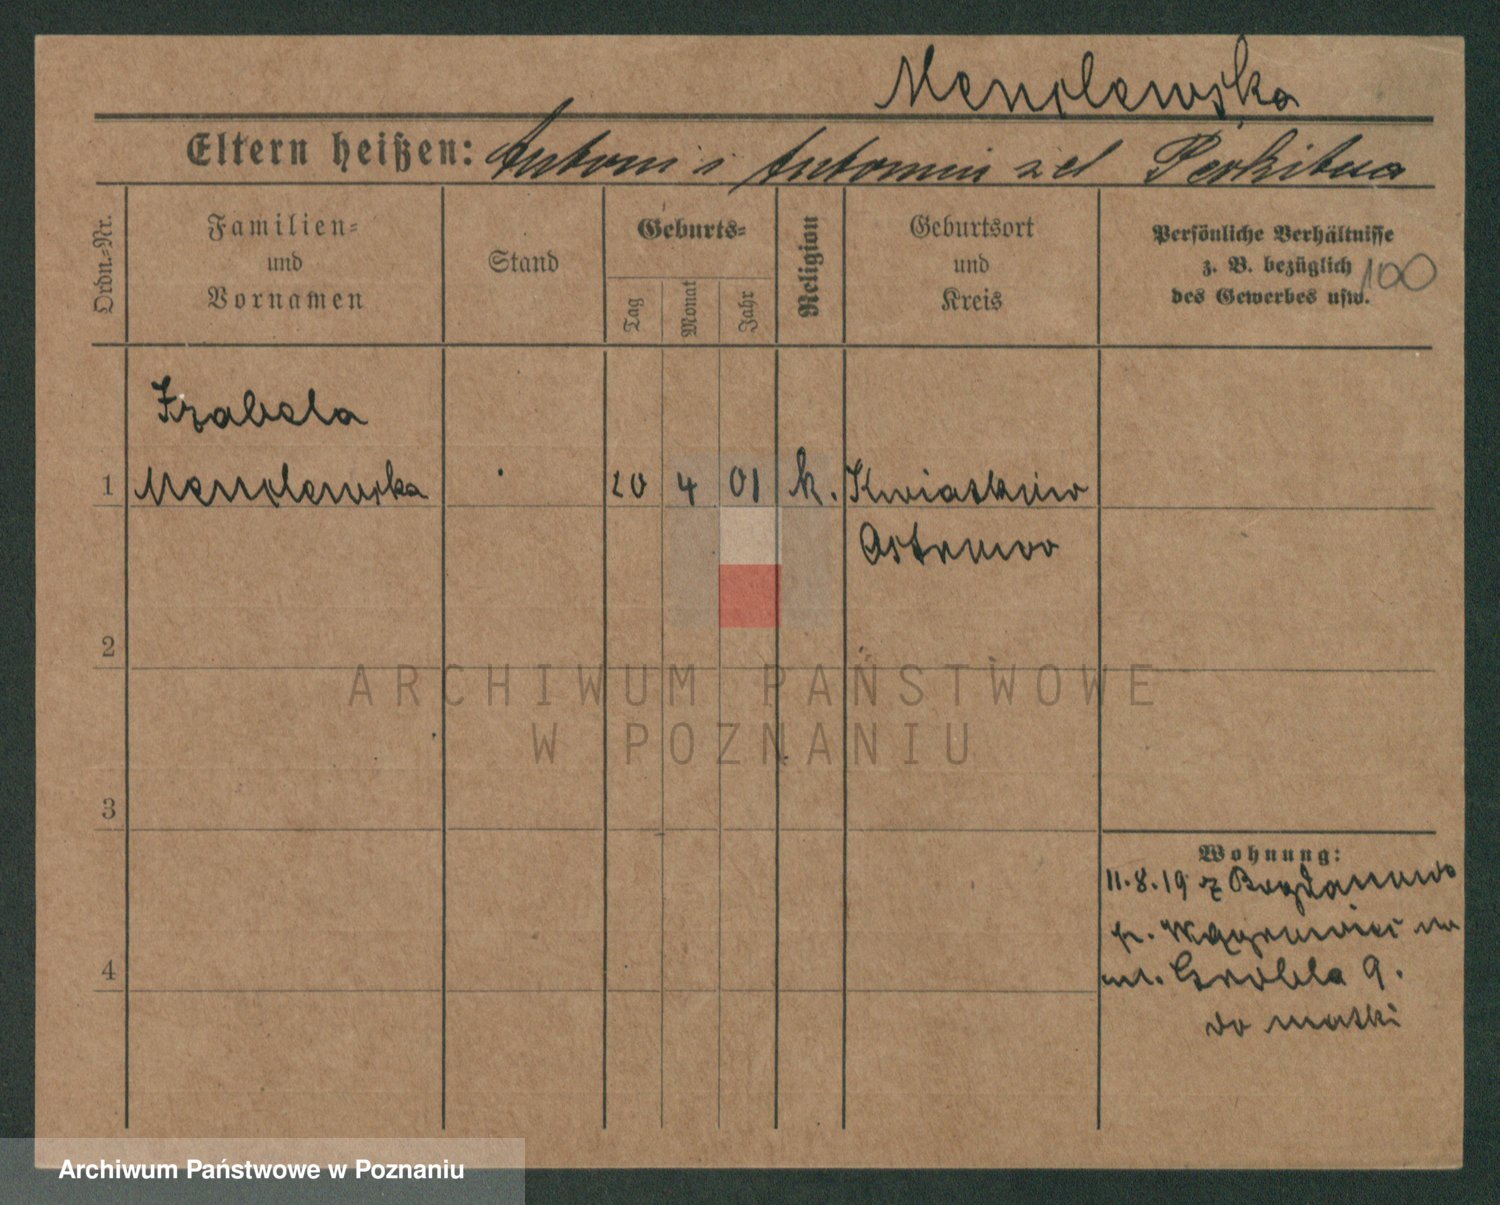 Mendlewska
Eltern heißen: Antoni i Antonina z d
Ordn.-Nr.
Familien-
und
Vornamen
Stand
Geburts-
Tag
Monat
Jahr
Religion
Geburtsort
und
Kreis
Persönliche Verhältnisse
z. B. bezüglich
des Gewerbes usw.
100
Izabela
1 Mendlewska 20 4 01 k. Kwiatków
Ostrowo
2
3
4
Wohnung:
11.8.19 z Bogdanowo
p. Wągrowiec na
ul. Grobla 9.
do matki
ARCHIWUM PAŃSTWOWE
W POZNANIU
Archiwum Państwowe w Poznaniu